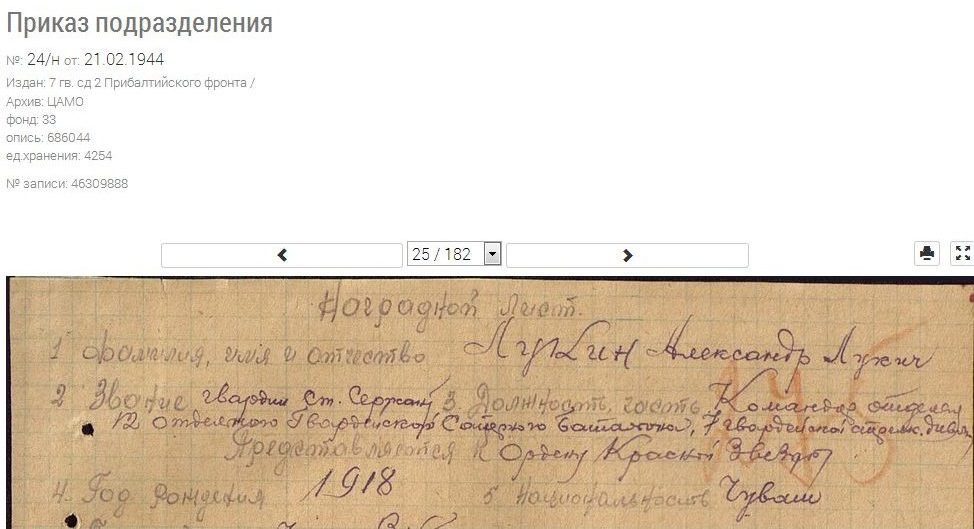 Приказ подразделения
№: 24/н от: 21.02.1944
Издан: 7 гв. сд 2 Прибалтийского фронта /
Архив: ЦАМО
фонд: 33
опись: 686044
ед.хранения: 4254
№ записи: 46309888
25 / 182
Наградной лист.
1 Фамилия, имя и отчество Лукин Александр Лукич
2 Звание гвардии Ст. Сержант 3 Должность, часть Командир отделен
12 отдельного Гвардейского Саперного баталиона, 7 гвардейской стрелк. дивиз
Представляется к Ордену Красной Звезды
4. Год рождения 1918 5. Национальность Чуваш